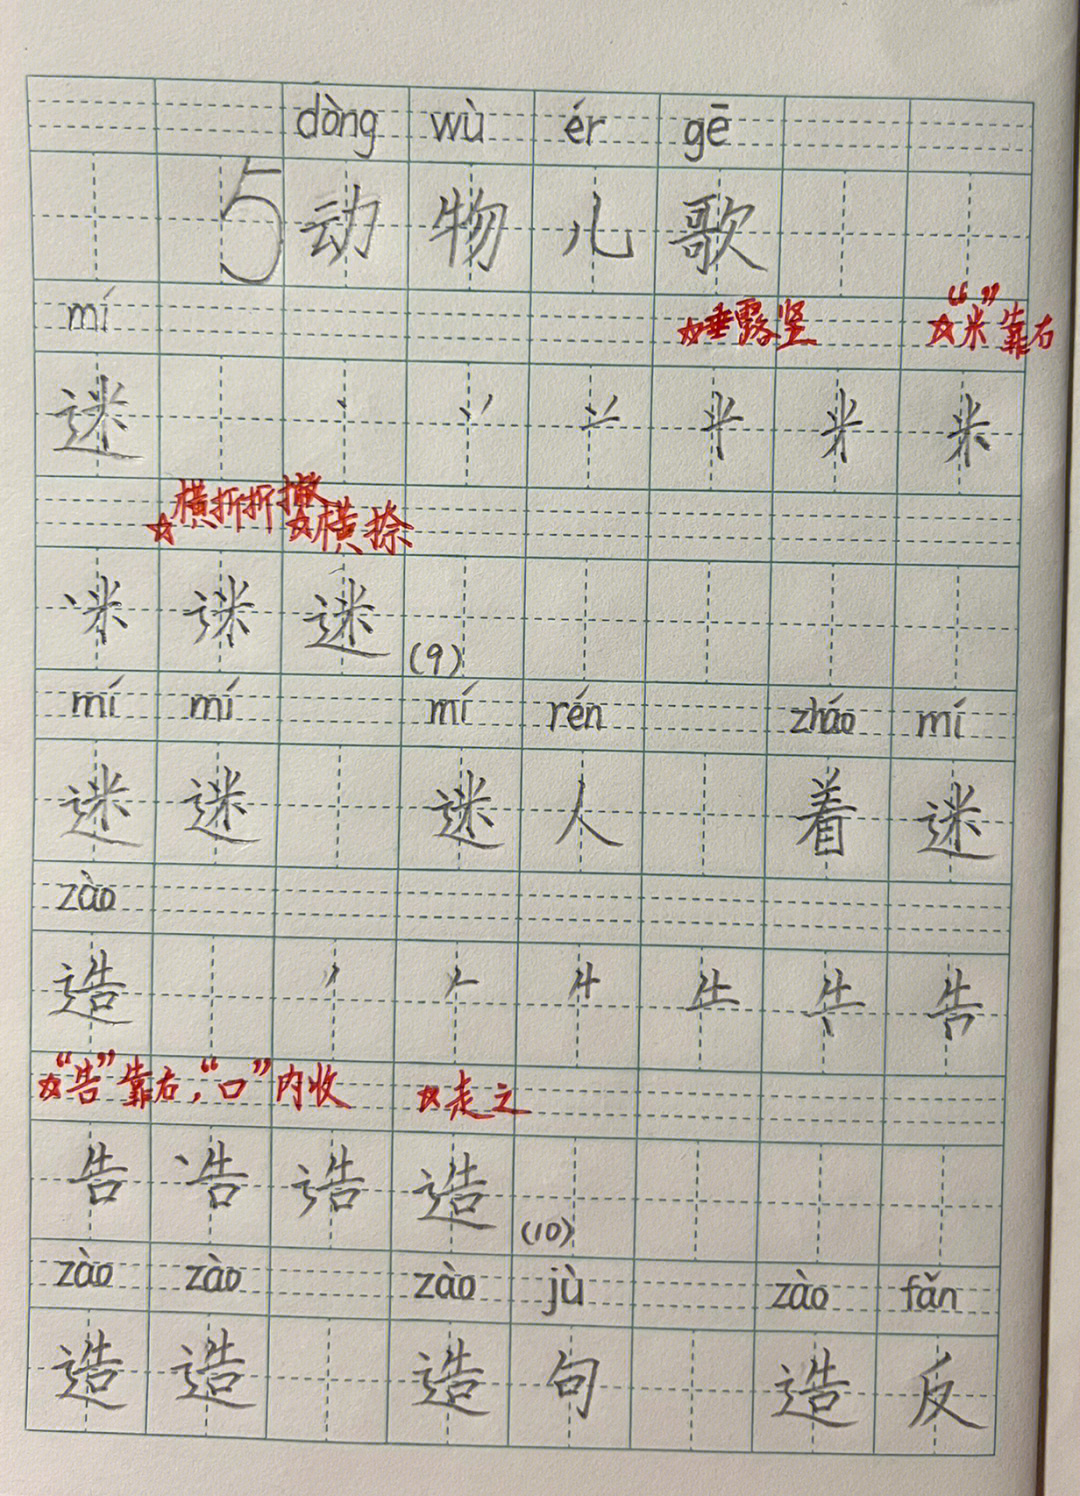 dòng wù ér gē
5 动 物 儿 歌
mí ☆垂露竖 ☆“米”靠右
迷 丶 丷 米 米
☆横折折撇 ☆横捺
迷 (9)
mí mí mí rén zháo mí
迷 迷 迷 人 着 迷
zào
造 丿 𠂉 牛 告
☆“告”靠右，“口”内收 ☆走之
告 造 (10)
zào zào zào jù zào fǎn
造 造 造 句 造 反